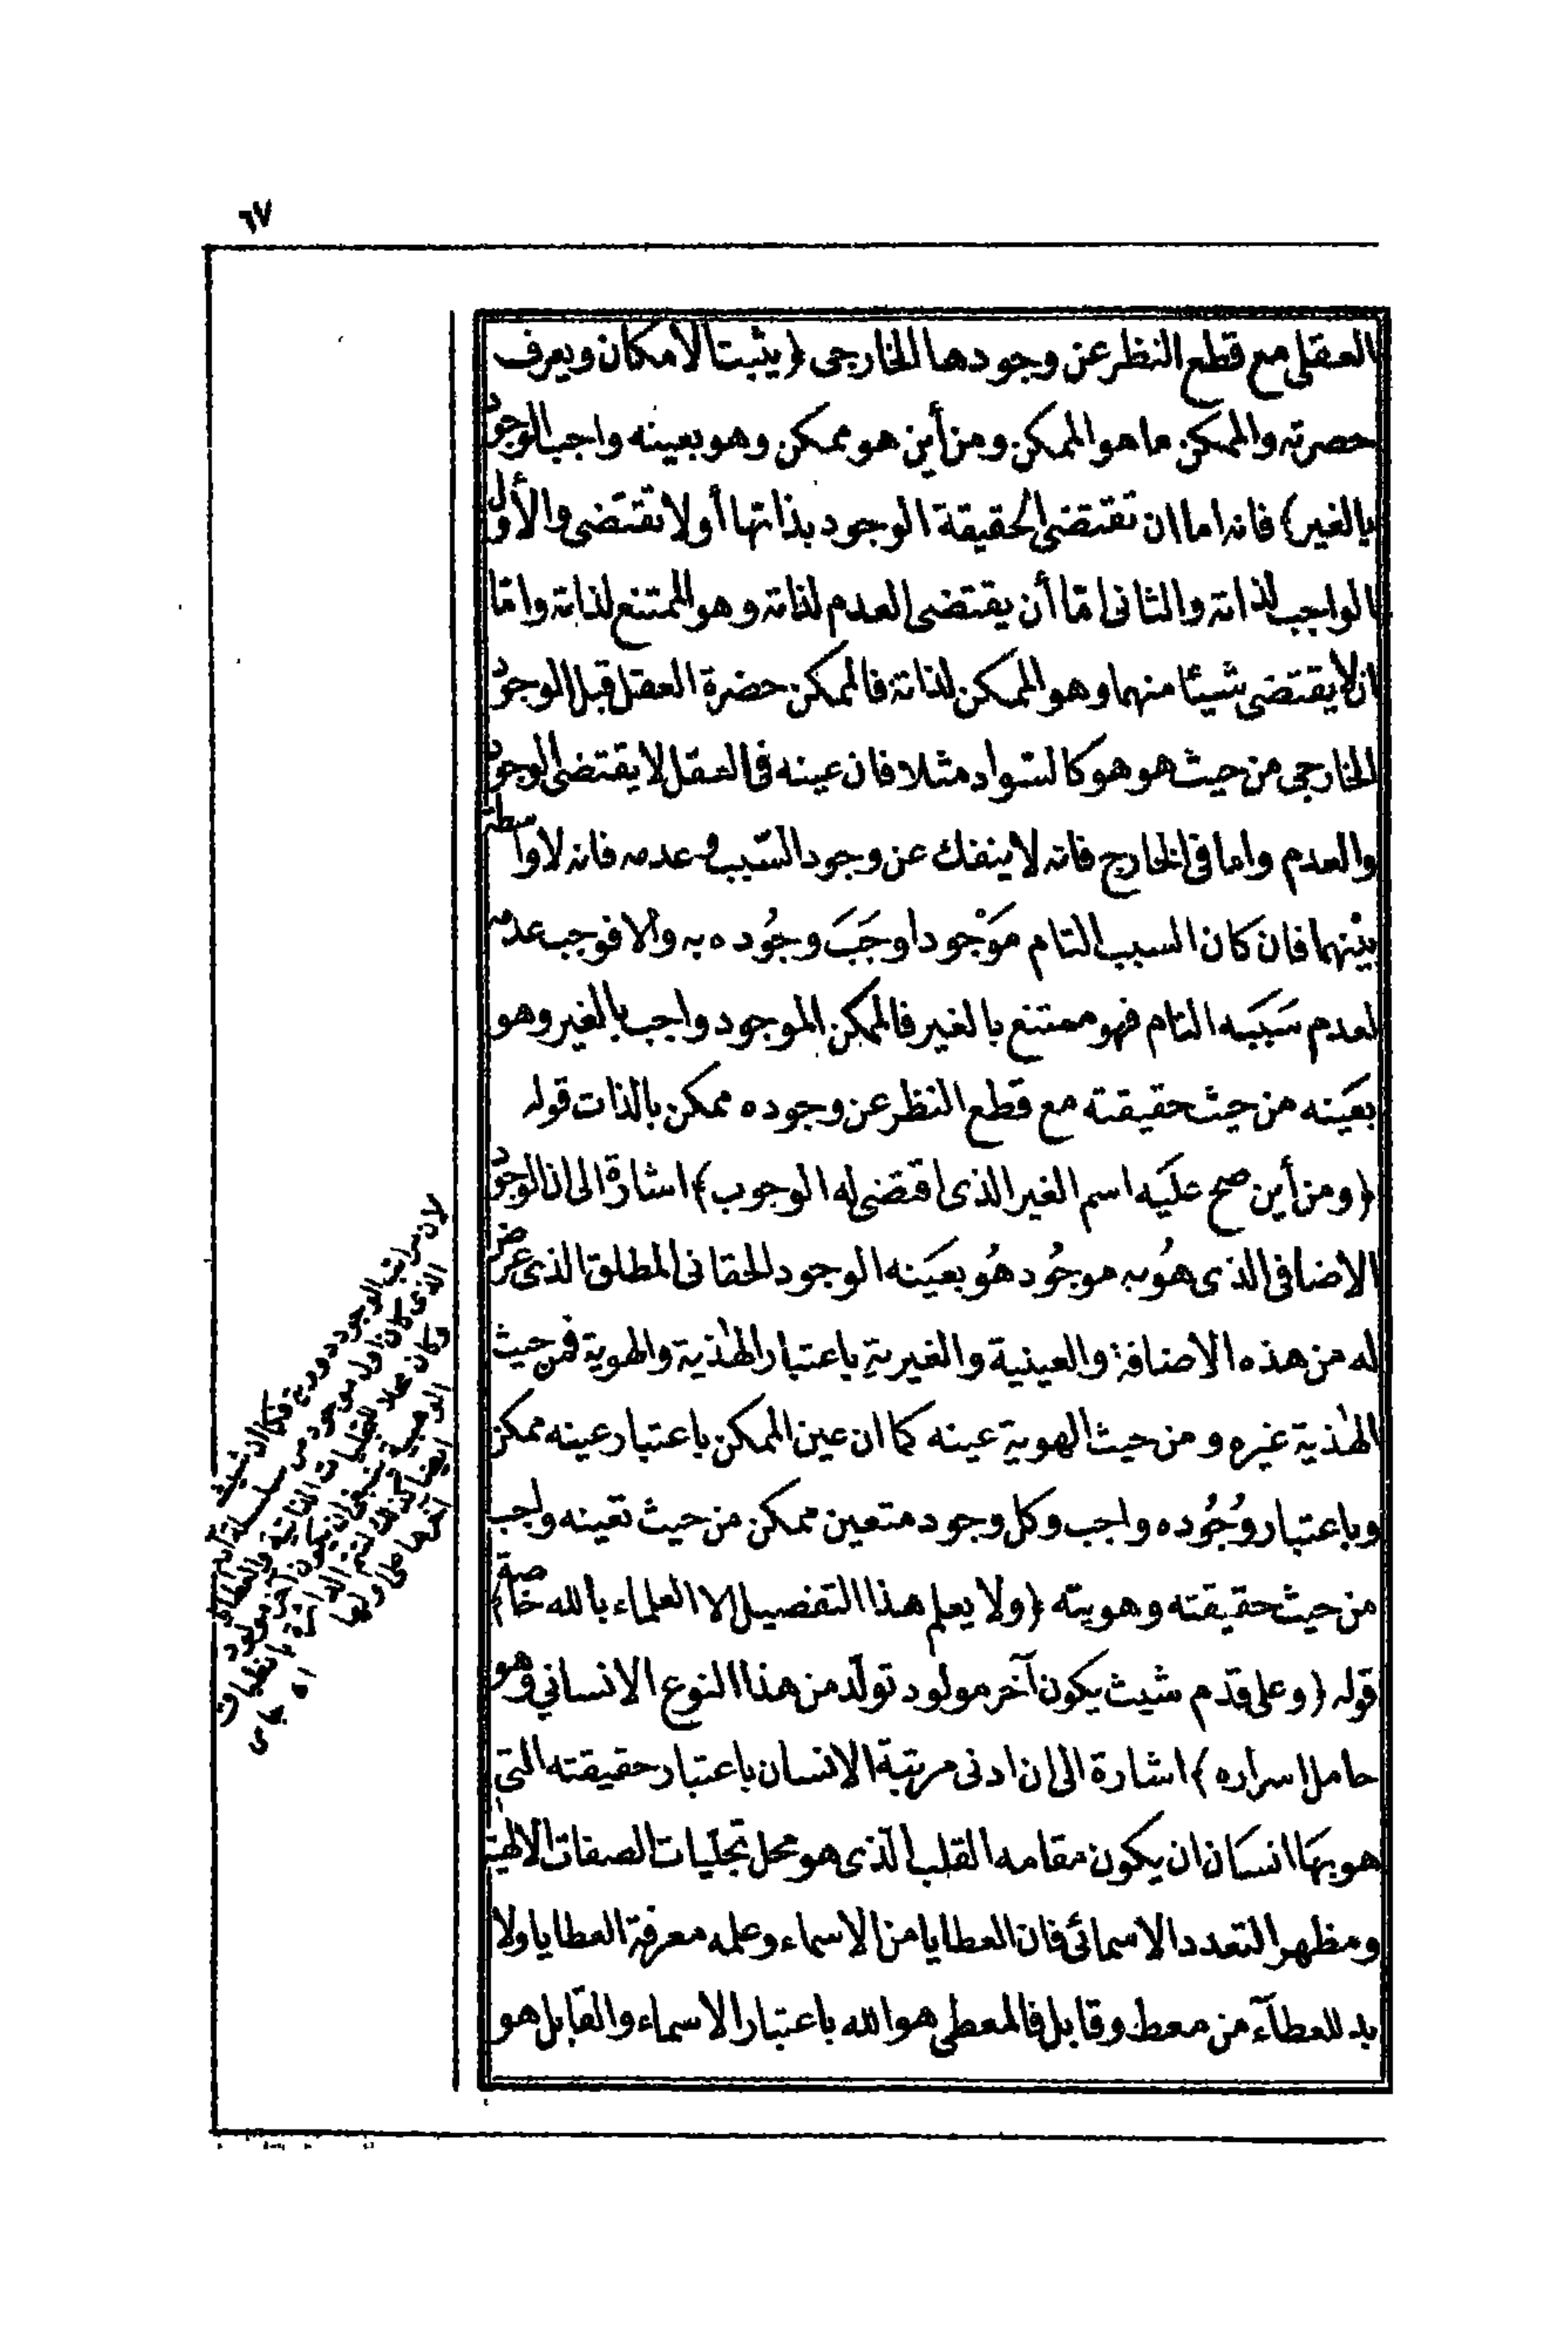 ٦٧
العقلى مع قطع النظر عن وجودها الخارجى ﴿يثبت الامكان ويعرف
حضرته والممكن ما هو الممكن ومن أين هو ممكن وهو بعينه واجب الوجود
بالغير﴾ فانه اما ان تقتضى الحقيقة الوجود بذاتها أو لا تقتضى والأول
الواجب لذاته والثانى امّا أن يقتضى العدم لذاته وهو الممتنع لذاته وامّا
ان لا يقتضى شيئا منهما وهو الممكن لذاته فالممكن حضرة العقل قبل الوجود
الخارجى من حيث هو هو كالسّواد مثلا فان عينه فى العقل لا يقتضى الوجود
والعدم واما فى الخارج فانه لا ينفك عن وجود السّبب وعدمه فانه لا واسطة
بيْنهما فان كان السبب التام مَوْجودا وجَبَ وجُوده به والا فوجب عدمه
لعدم سَبَبه التام فهو ممتنع بالغير فالممكن الموجود واجب بالغير وهو
بعَينه من حيث حقيقته مع قطع النظر عن وجوده ممكن بالذات قوله
﴿ومن أين صح عليَه اسم الغير الذى اقتضى له الوجوب﴾ اشارة الى ان الوجود
الاضافى الذى هُو به موجُود هُو بعَينه الوجود الحقانى المطلق الذى عرض
له من هذه الاضافة والعينية والغيرية باعتبار الهٰذية والهوية فمن حيث
الهٰذية غيره ومن حيث الهوية عينه كما ان عين الممكن باعتبار عينه ممكن
وباعتبار وُجُوده واجب وكل وجود متعين ممكن من حيث تعينه واجب
من حيث حقيقته وهويته ﴿ولا يعلم هذا التفصيل الا العلماء بالله خاصة﴾
قوله ﴿وعلى قدم شيث يكون آخر مولود تولّد من هذا النوع الانسانى وهو
حامل اسراره﴾ اشارة الى ان ادنى مرتبة الانسان باعتبار حقيقته التى
هو بهَا انسَان ان يكون مقامه القلب الّذى هو محل تجلّيات الصفات الالهية
ومظهر التعدد الاسمائى فان العطايا من الاسماء وعلمه معرفة العطايا ولا
بد للعطآء من معط وقابل فالمعطى هو الله باعتبار الاسماء والقابل هو
لان مراتب الوجود دورية فكما ان شيث
الذى كان اول موجود من
وكان محلا للتجليات الذاتية والعطايا
ينبغى ان يكون آخر مولود